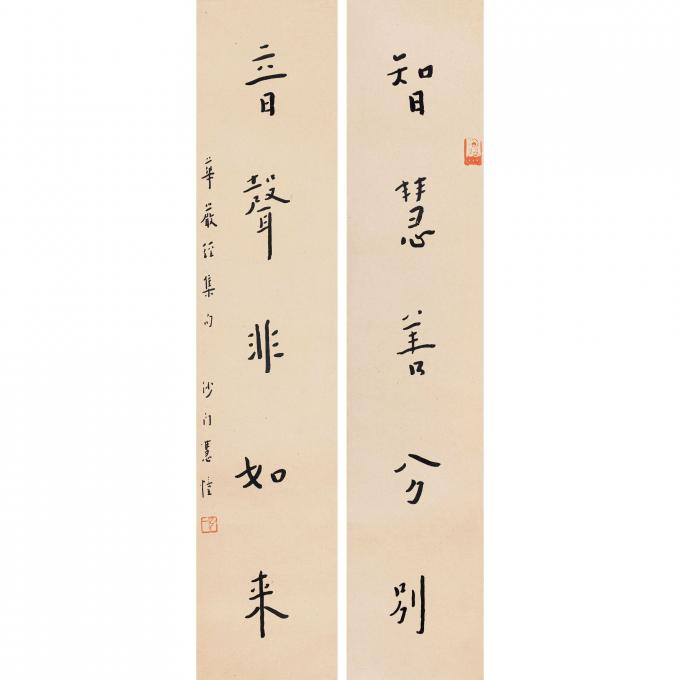 智慧善分別
音聲非如來
華嚴經集句
沙門慧幢